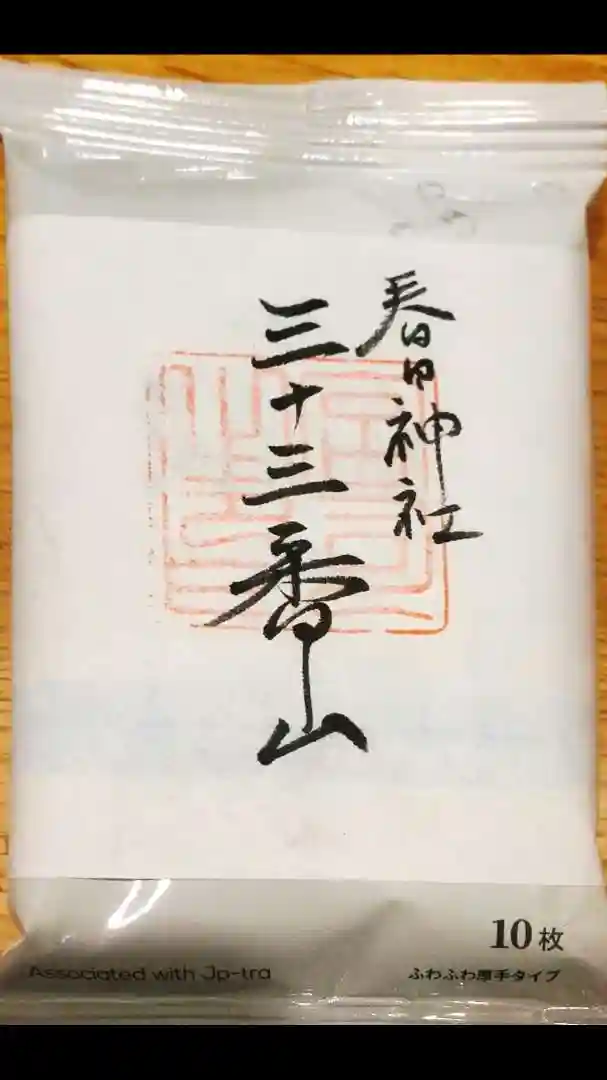 春日神社
三十三番山
10枚
Associated with Jp-tra
ふわふわ厚手タイプ